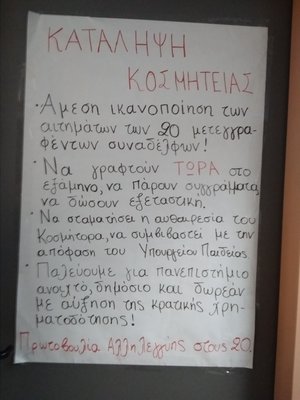 ΚΑΤΑΛΗΨΗ
ΚΟΣΜΗΤΕΙΑΣ
· Άμεση ικανοποίηση των
αιτημάτων των 20 μετεγγρα-
φέντων συναδέλφων!
· Να γραφτούν ΤΩΡΑ στο
εξάμηνο, να πάρουν συγγράματα,
να δώσουν εξεταστική.
· Να σταματήσει η αυθαιρεσία του
Κοσμήτορα, να συμβιβαστεί με την
απόφαση του Υπουργείου Παιδείας.
· Παλεύουμε για πανεπιστήμιο
ανοιχτό, δημόσιο και δωρεάν
με αύξηση της κρατικής χρη-
ματοδότησης!
Πρωτοβουλία Αλληλεγγύης στους 20.